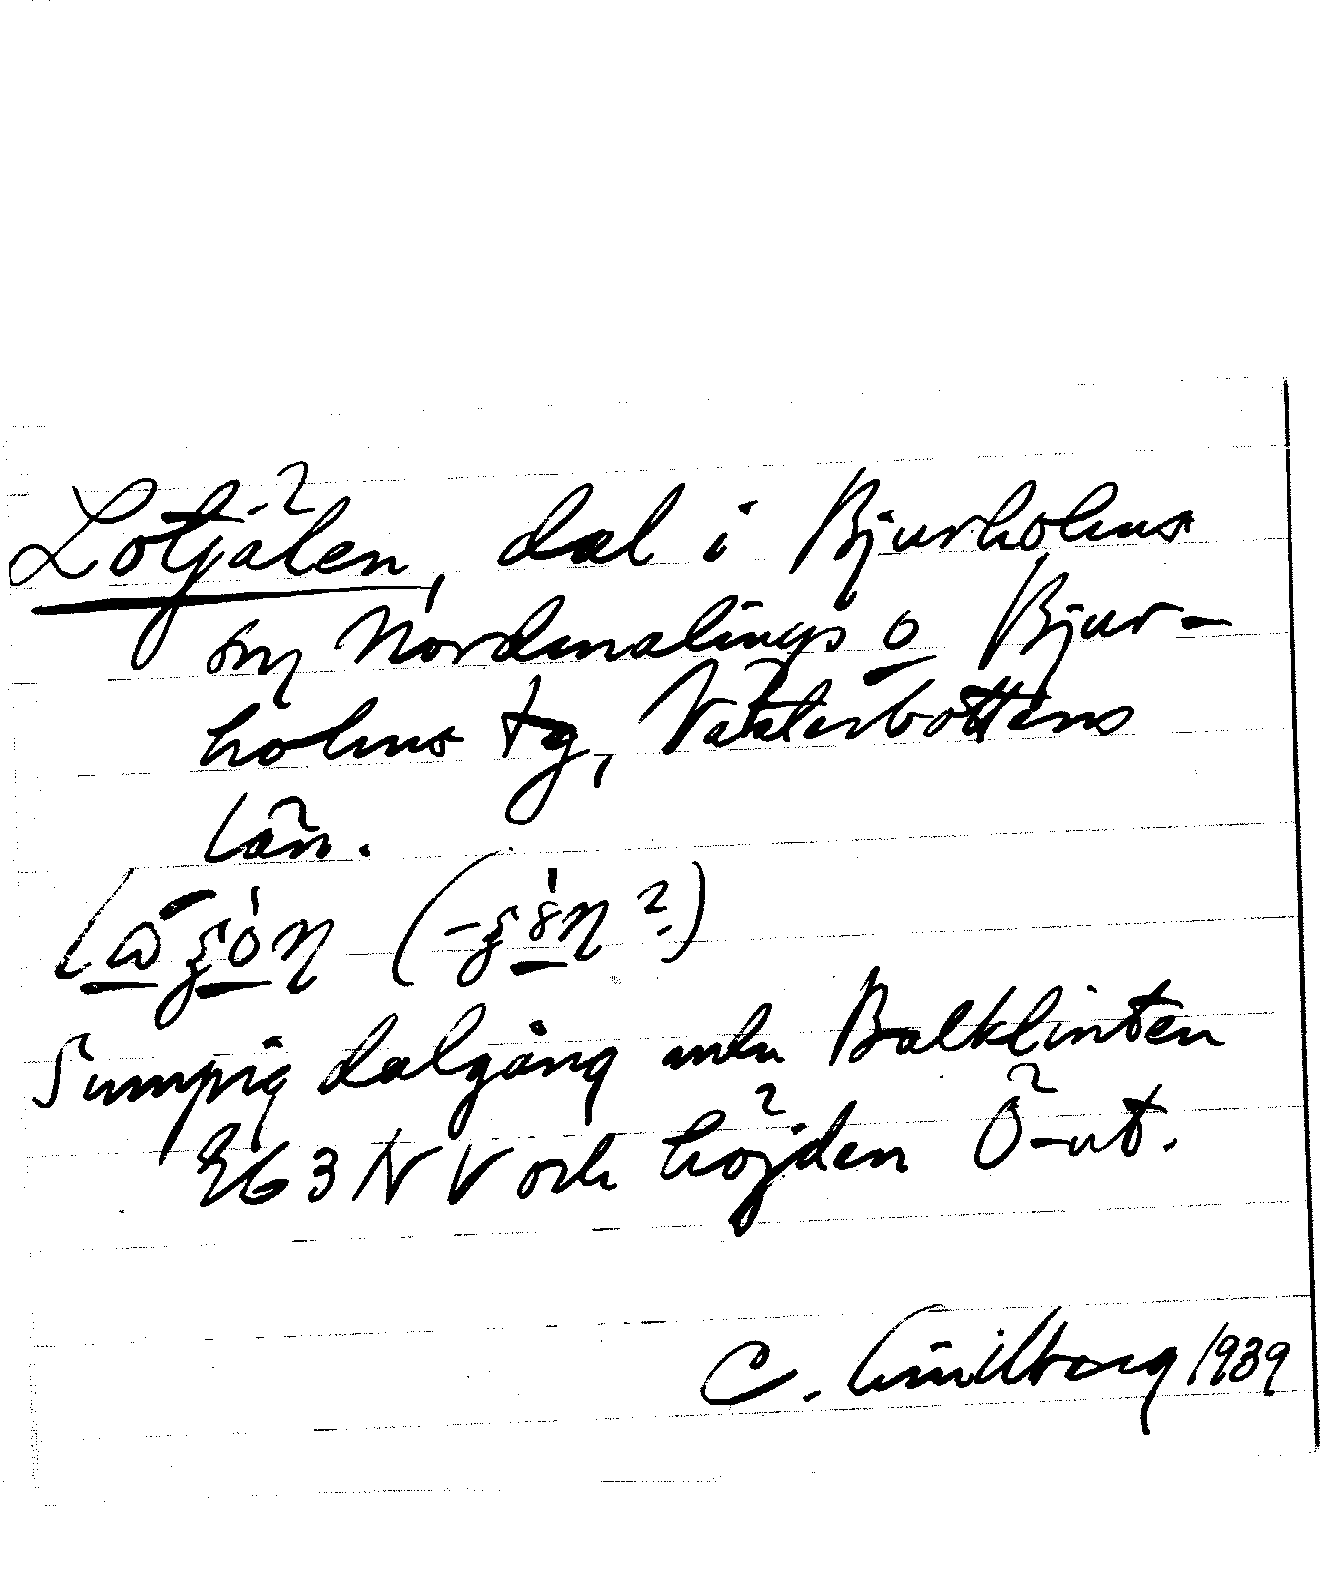 Lotjälen, dal i Bjurholms
sn Nordmalings o Bjur-
holms tg, Västerbottens
län.
Sumpig dalgång mln Balklinten
3 NV och höjden Ö-ut.
C. 1939